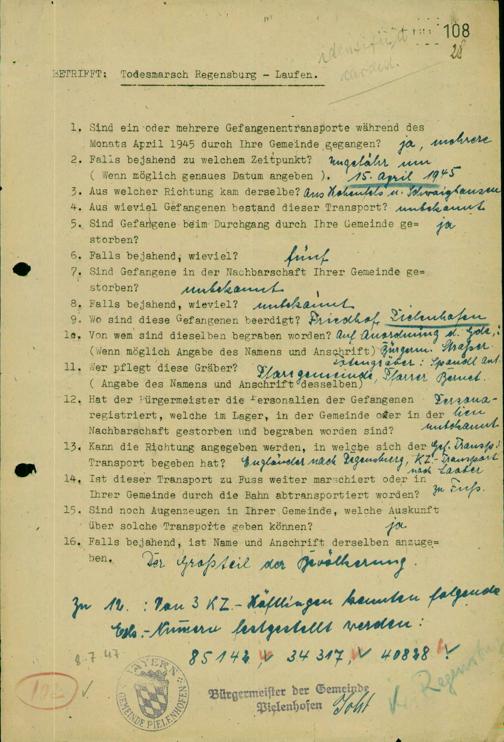 108
28
identifiziert
BETRIFFT: Todesmarsch Regensburg - Laufen.
1. Sind ein oder mehrere Gefangenentransporte während des
Monats April 1945 durch Ihre Gemeinde gegangen? ja, mehrere
2. Falls bejahend zu welchem Zeitpunkt? Ungefähr um
( Wenn möglich genaues Datum angeben ). 15. April 1945
3. Aus welcher Richtung kam derselbe? Aus Hohenfels u. Schwaighausen
4. Aus wieviel Gefangenen bestand dieser Transport? unbekannt
5. Sind Gefangene beim Durchgang durch Ihre Gemeinde ge= ja
storben?
6. Falls bejahend, wieviel? fünf
7. Sind Gefangene in der Nachbarschaft Ihrer Gemeinde ge=
storben? unbekannt
8. Falls bejahend, wieviel? unbekannt
9. Wo sind diese Gefangenen beerdigt? Friedhof Pielenhofen
10. Von wem sind dieselben begraben worden? Auf Anordnung d. Gde.:
(Wenn möglich Angabe des Namens und Anschrift) Bürgerm.
Totengräber:
11. Wer pflegt diese Gräber? Pfarrgemeinde, Pfarrer
( Angabe des Namens und Anschrift desselben)
12. Hat der Bürgermeister die Personalien der Gefangenen Persona-
registriert, welche im Lager, in der Gemeinde oder in der lien
Nachbarschaft gestorben und begraben worden sind? unbekannt
13. Kann die Richtung angegeben werden, in welche sich der Gef. Transp.:
Transport begeben hat? Engländer nach Regensburg, KZ-Transport
nach Laaber
14. Ist dieser Transport zu Fuss weiter marschiert oder in
Ihrer Gemeinde durch die Bahn abtransportiert worden? zu Fuß.
15. Sind noch Augenzeugen in Ihrer Gemeinde, welche Auskunft
über solche Transporte geben können? ja
16. Falls bejahend, ist Name und Anschrift derselben anzuge=
ben. Der Großteil der Bevölkerung.
Zu 12. : Von 3 KZ-Häftlingen konnten folgende
Erk.-Nummern festgestellt werden:
85142, 34317, 40828
8.7.47
BAYERN
GEMEINDE PIELENHOFEN
Bürgermeister der Gemeinde
Pielenhofen
Regensburg